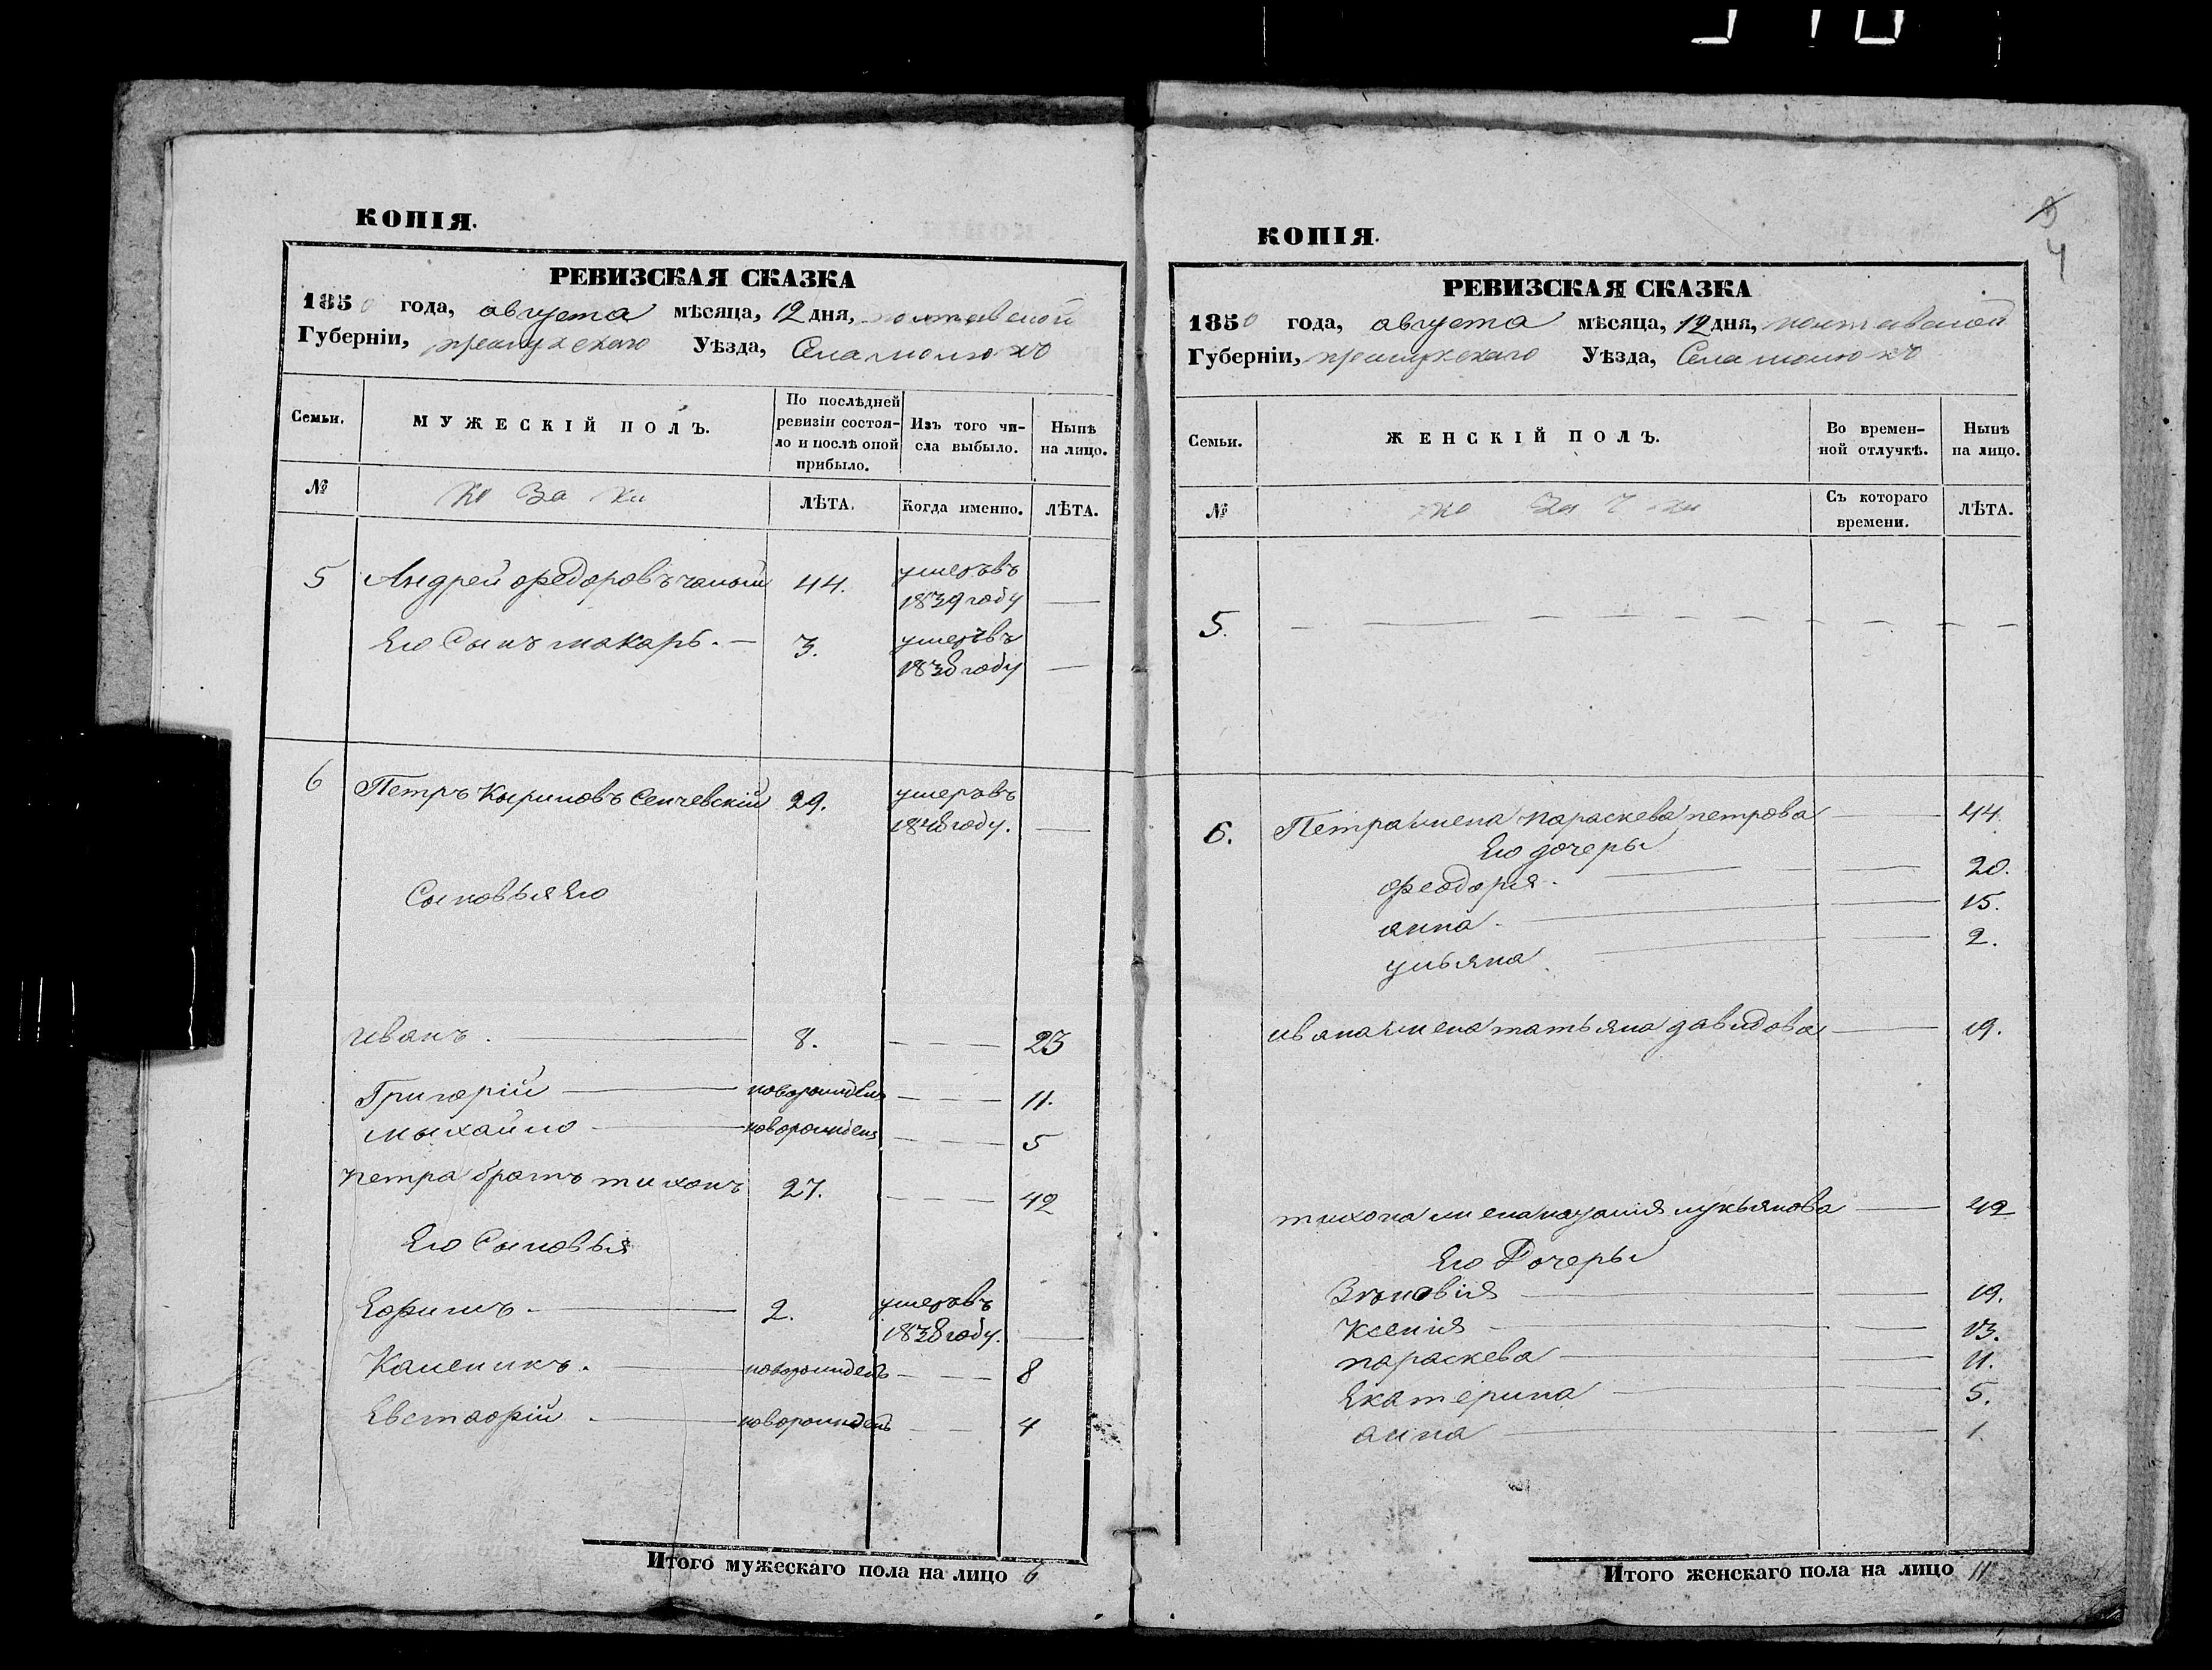 КОПІЯ.
РЕВИЗСКАЯ СКАЗКА
1850 года, августа мѣсяца, 12 дня, полтавской
Губерніи, прилукскаго Уѣзда, Села
Семьи.
МУЖЕСКІЙ ПОЛЪ.
По послѣдней ревизіи состоя-
ло и послѣ оной прибыло.
Изъ того чи-
сла выбыло.
Нынѣ
на лицо.
№
ко за ки
ЛѢТА.
Когда именно.
ЛѢТА.
5 Андрей Федоровъ 44. умеръ въ
1839 году —
Его Сынъ макаръ. — 3. умеръ въ
1838 году —
6 Петръ Кыриловъ Сенчевскій 29. умеръ въ
1848 году. —
Сыновья Его
иванъ. — 8. — — — 23
Григорій — новорожден — — — 11.
мыхайло — новорожден — — — 5
петра братъ тихонъ 27. — — — 42
Его Сыновья
Ефимъ. — 2. умеръ въ
1838 году. —
Каленикъ. — новорожденъ — — — 8
Евстафій. — новорожденъ — — 4
Итого мужескаго пола на лицо 6
4
КОПІЯ.
РЕВИЗСКАЯ СКАЗКА
1850 года, августа мѣсяца, 12 дня, полтавской
Губерніи, прилукскаго Уѣзда, Села
Семьи.
ЖЕНСКІЙ ПОЛЪ.
Во времен-
ной отлучкѣ.
Нынѣ
на лицо.
№
ко за ч ки
Съ котораго
времени.
ЛѢТА.
5. — — — — — — — — — —
6. Петра жена параскева петрова — 44.
Его дочеры
феодория. — — 20.
анна. — — 15.
ульяна — — 2.
ивана жена татьяна давидова — 19.
тихона жена лукьянова — 42
Его Дочеры
Зѣновія — — 19.
Ксенія — — 13.
параскева — — 11.
Екатерина — — 5.
анна — — 1.
Итого женскаго пола на лицо 11